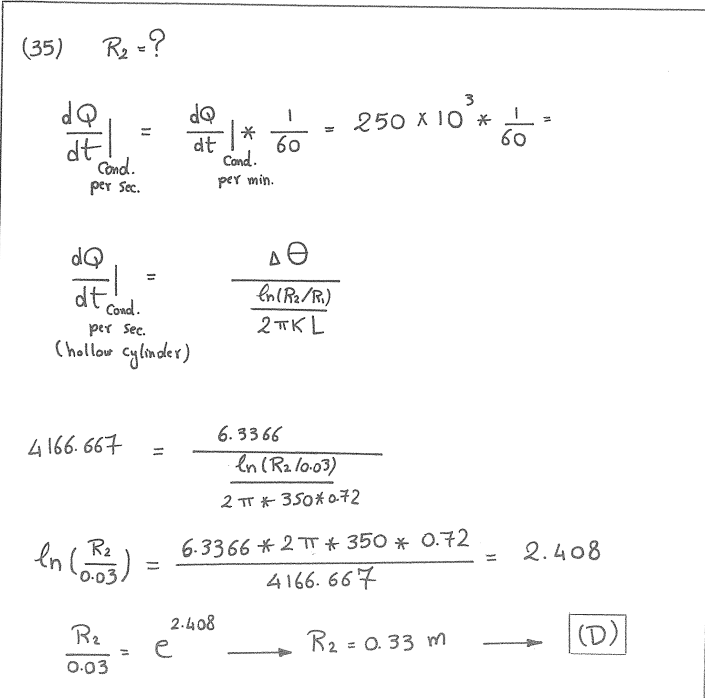 (35) R₂ = ?
dQ/dt |Cond. per sec. = dQ/dt |Cond. per min. * 1/60 = 250 x 10³ * 1/60 =
dQ/dt |Cond. per sec. (hollow cylinder) = Δθ / (ln(R₂/R₁) / 2πKL)
4166.667 = 6.3366 / (ln(R₂/0.03) / 2π * 350 * 0.72)
ln(R₂/0.03) = 6.3366 * 2π * 350 * 0.72 / 4166.667 = 2.408
R₂/0.03 = e^2.408 → R₂ = 0.33 m → (D)